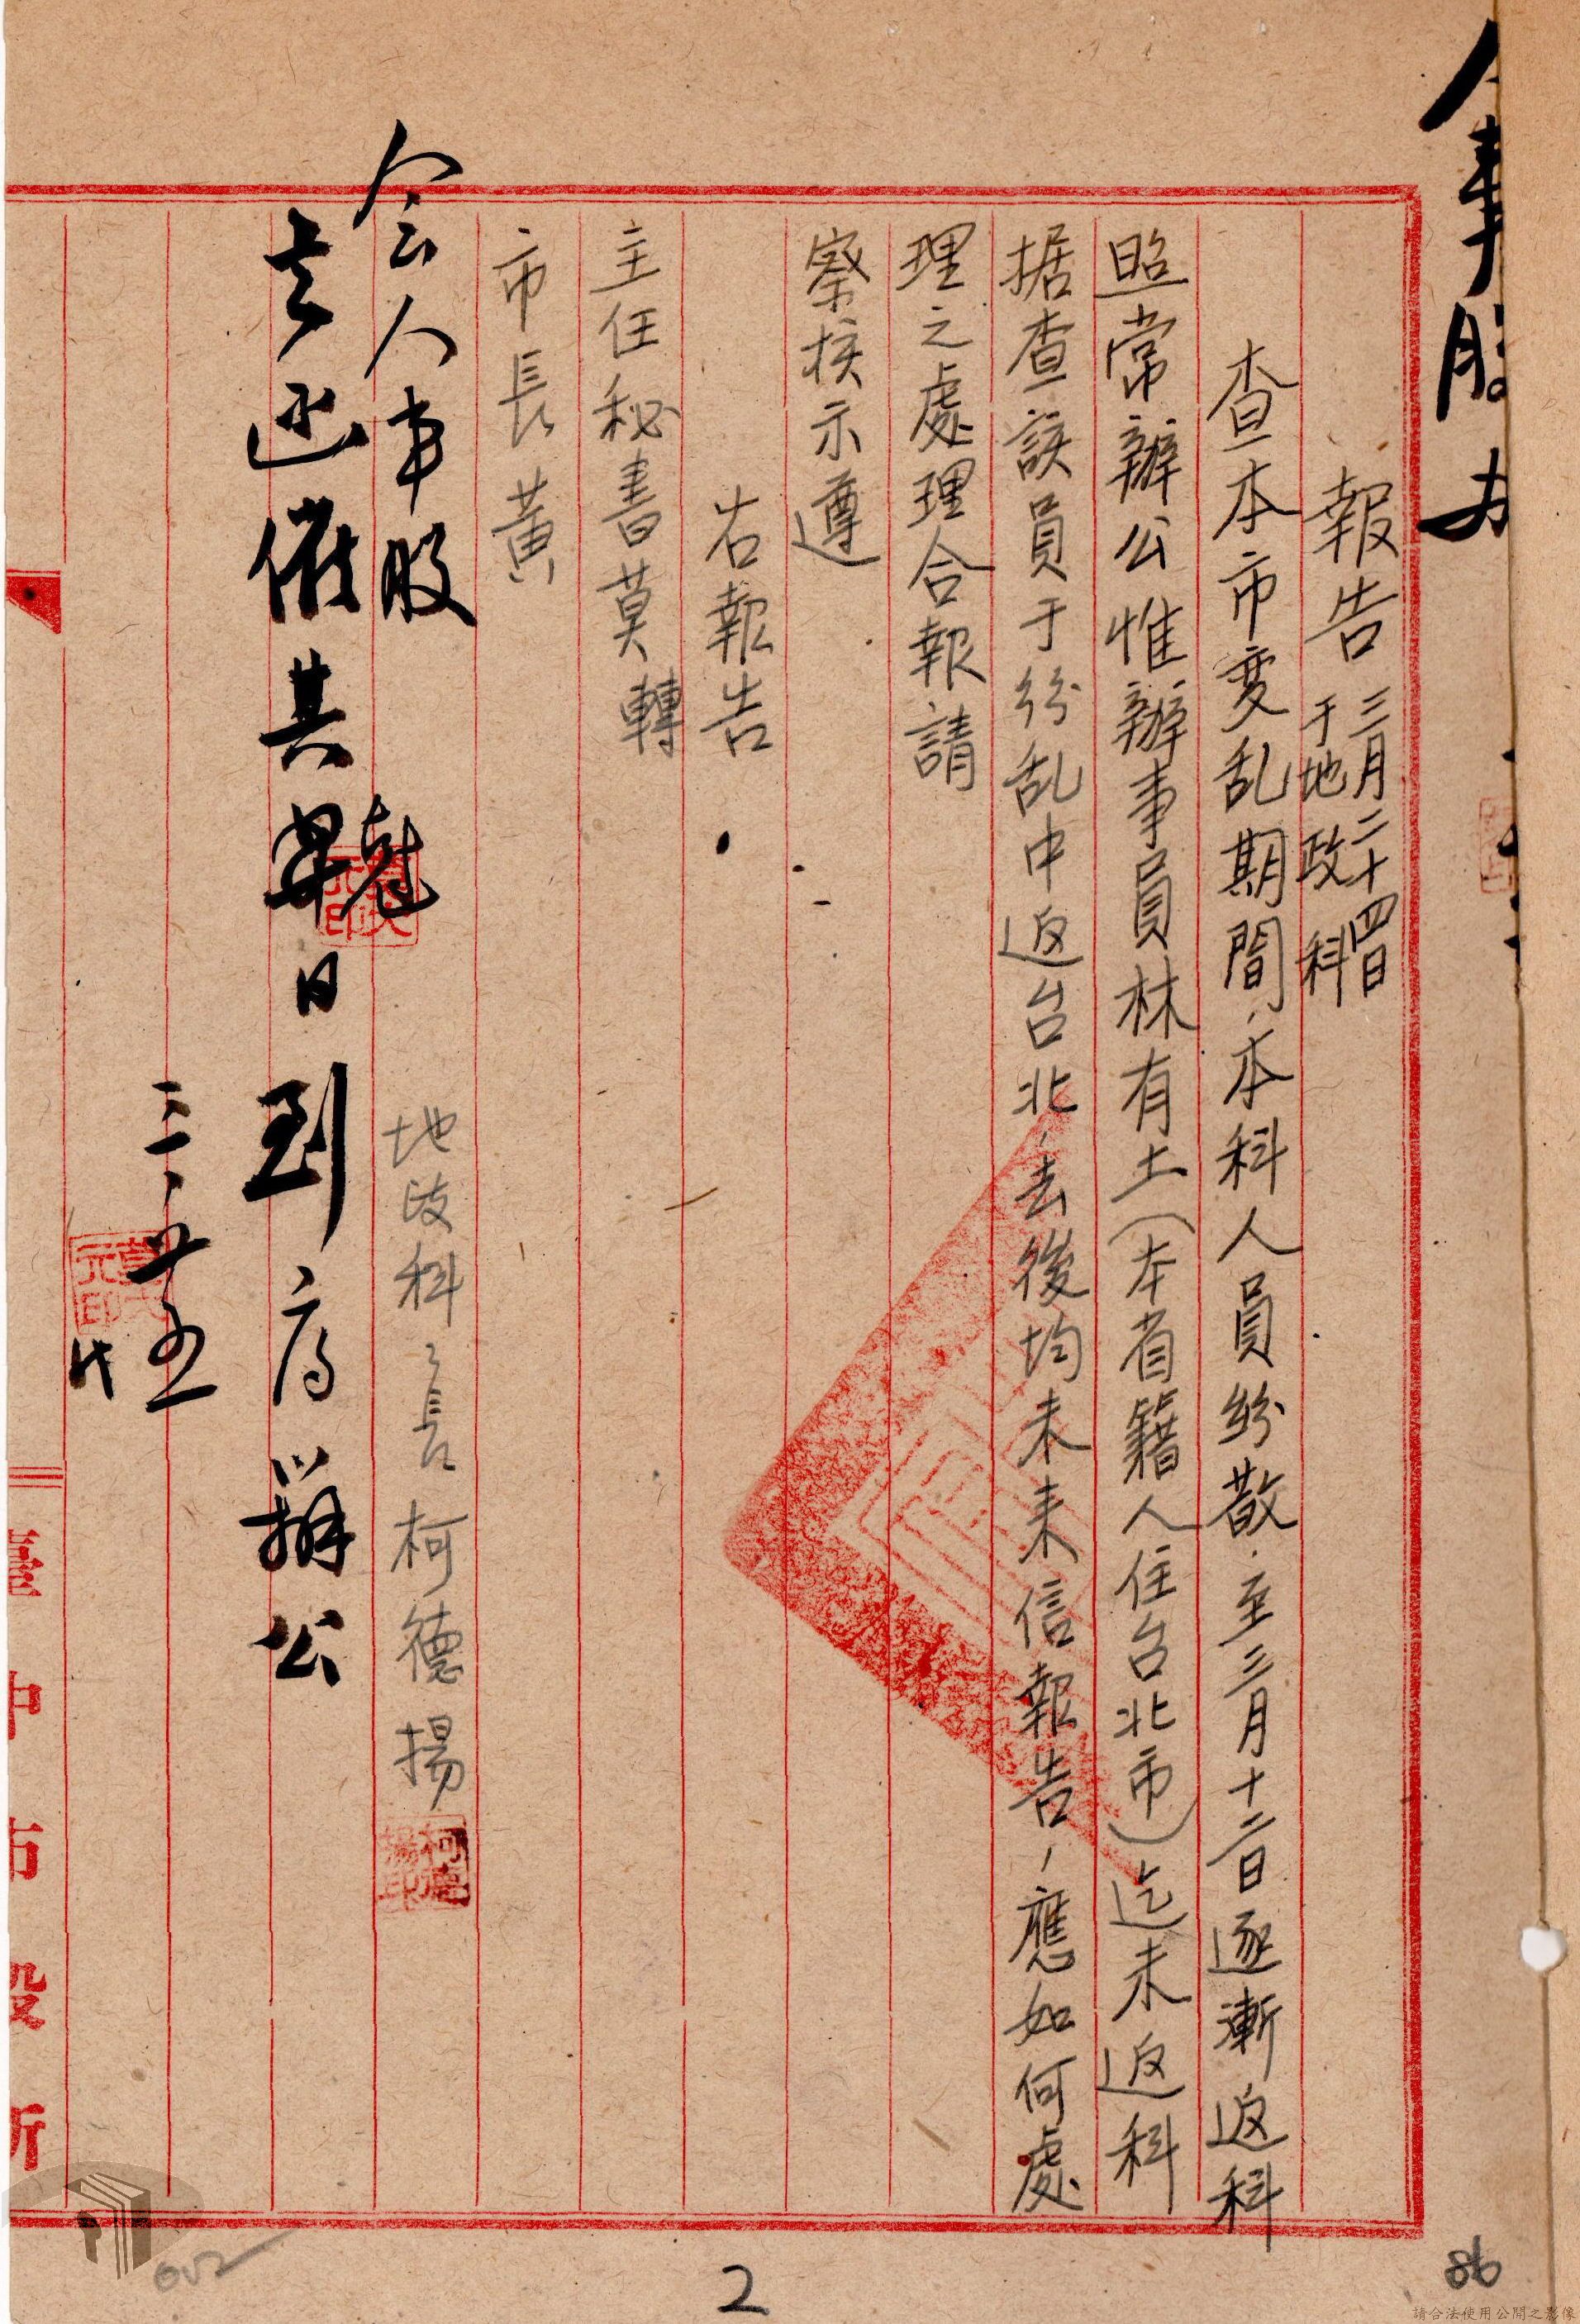 人事股办
報告 三月二十四日
于地政科
查本市変乱期間,本科人員紛散.至三月十二日逐漸返科
照常辦公惟辦事員林有土(本省籍人住台北市)迄未返科
据查該員于紛乱中返台北,去後均未来信報告,應如何處
理之處理合報請
察核示遵
右報告
主任秘書莫轉
市長黃
地政科々長柯德揚
柯德揚印
会人事股
去函催其尅日到府辦公
三、廿五
元印
代
中市役所
2
86
052
請合法使用公開之影像